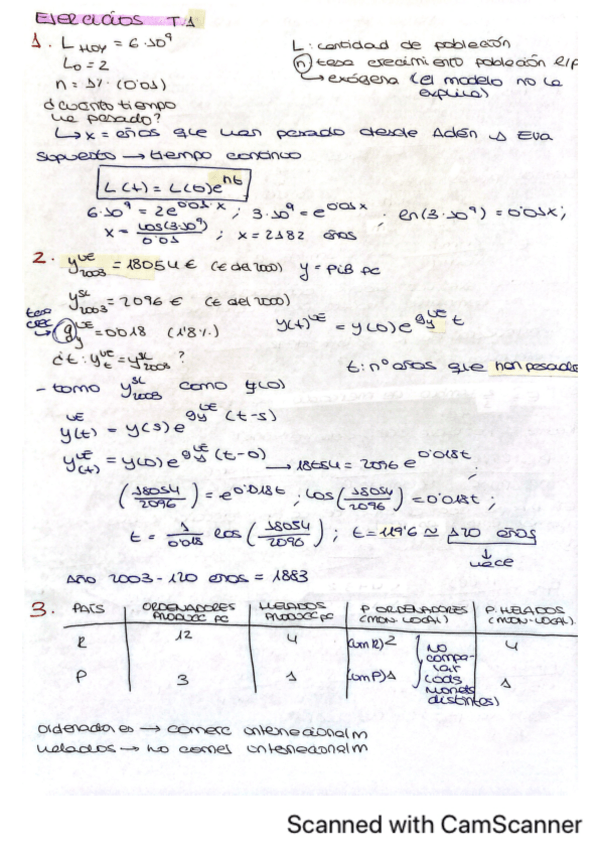 EJERCICIOS T.1
1. L HOY = 6·10⁹
L: cantidad de población
L₀ = 2
(n) tasa crecimiento población e/p
n = 1% (0'01)
↳ exógena (el modelo no la explica)
¿cuánto tiempo ha pasado?
↳ x = años que han pasado desde Adán y Eva
supuesto → tiempo continuo
L(t) = L(0)e^nt
6·10⁹ = 2e^0'01·x ; 3·10⁹ = e^0'01x ; ln(3·10⁹) = 0'01x ;
x = log(3·10⁹)/0'01 ; x = 2182 años
2. y^UE_2003 = 18054 € (€ del 2000) y = PIB pc
y^SL_2003 = 2096 € (€ del 2000)
tasa crec → g_y^UE = 0'018 (1'8%) y(t)^UE = y(0)e^g_y^UE t
¿t: y_t^UE = y^SL_2003 ?
t: nº años que han pasado
- tomo y^SL_2003 como y(0)
y(t)^UE = y(s)e^g_y^UE (t-s)
y(t)^UE = y(0)e^g_y^UE (t-0) → 18054 = 2096 e^0'018t ;
(18054/2096) = e^0'018t ; log(18054/2096) = 0'018t ;
t = 1/0'018 log(18054/2096) ; t = 119'6 ≃ 120 años
↓
hace
Año 2003 - 120 años = 1883
3. PAÍS ORDENADORES PRODUCC PC HELADOS PRODUCC PC P. ORDENADORES (MON·LOCAL) P. HELADOS (MON·LOCAL)
R 12 4 (um R) 2 4
P 3 1 (um P) 1 1
(NO comparar (ods moneds distintas)
ordenadores → comerc internacionalm
helados → no comerc internacionalm
Scanned with CamScanner